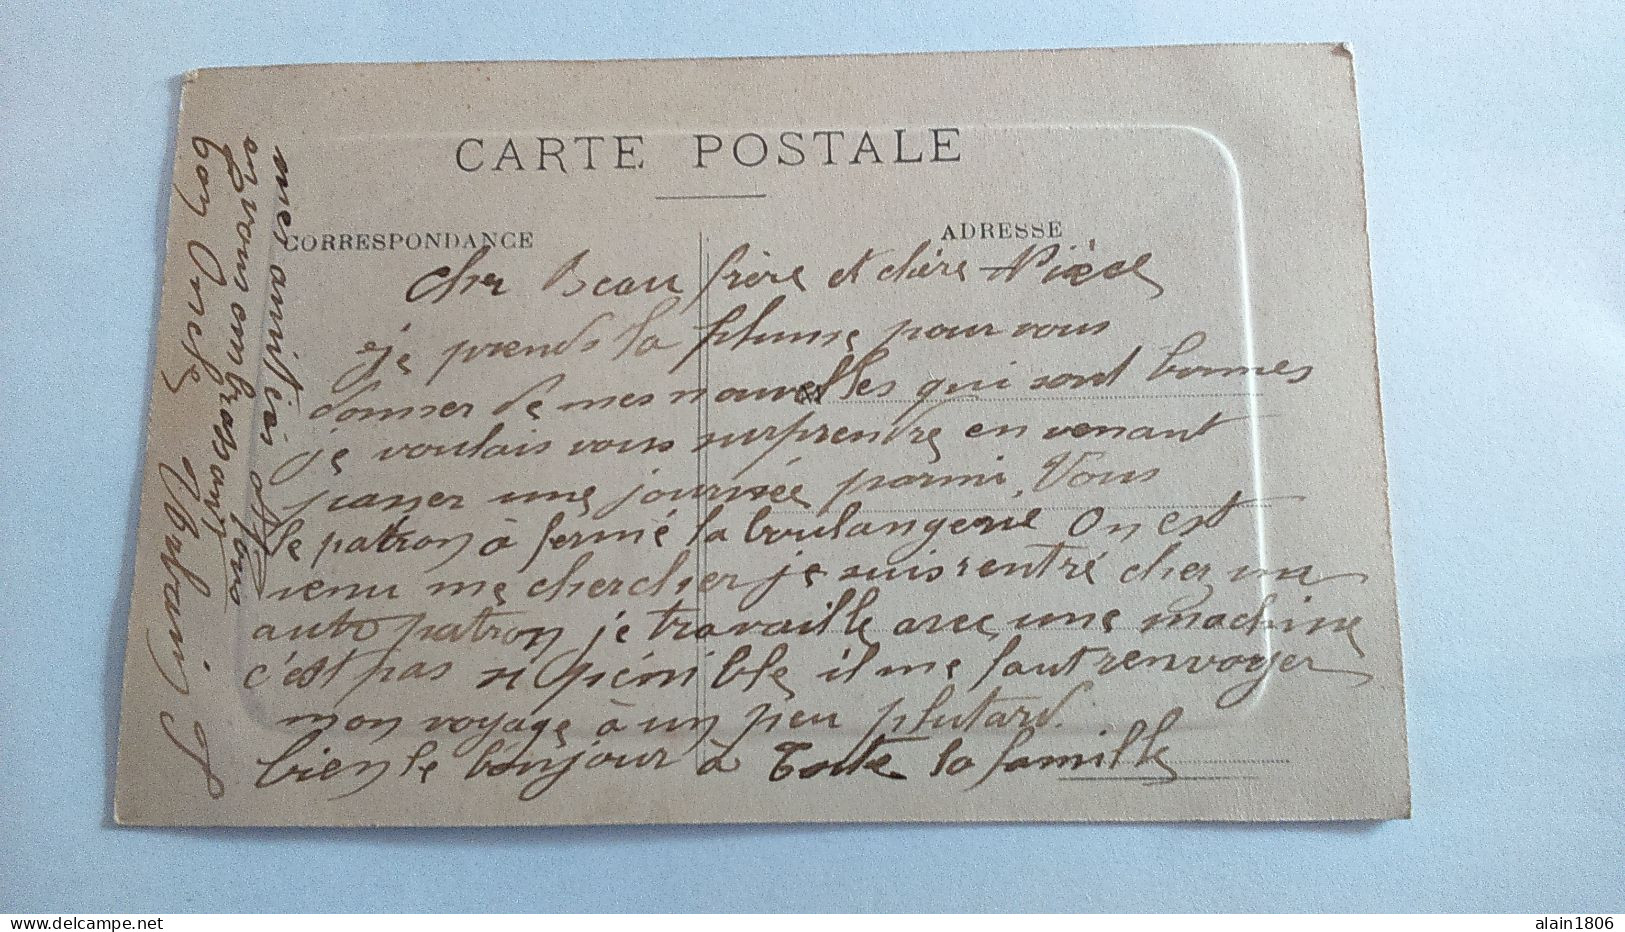 CARTE POSTALE
CORRESPONDANCE
ADRESSE
cher Beau frère et chère Nièce
je prends la plume pour vous
donner de mes nouvelles qui sont bonnes
je voulais vous surprendre en venant
passer une journée parmi Vous
le patron à fermé la boulangerie On est
venu me chercher je suis rentré cher un
auto patron je travaille avec une machine
c'est pas si pénible il me faut renvoyer
mon voyage à un peu plutard.
bien le bonjour à Toute la famille
mes amitiés à Tous
en vous embrassant
bon Oncle Urbain J
www.delcampe.net
alain1806